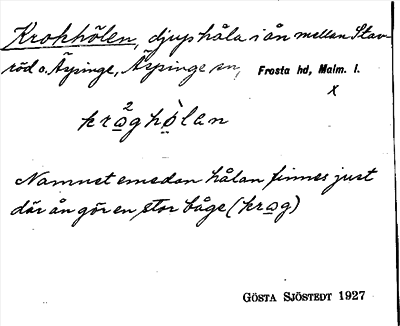 Krokhölen, djup håla i ån mellan Stav-
röd o. Äspinge, Äspinge sn, Frosta hd, Malm. l.
x
kra̲2ghö̲̀lan
Namnet emedan hålan finnes just
där ån gör en stor båge (kra̲g)
GÖSTA SJÖSTEDT 1927